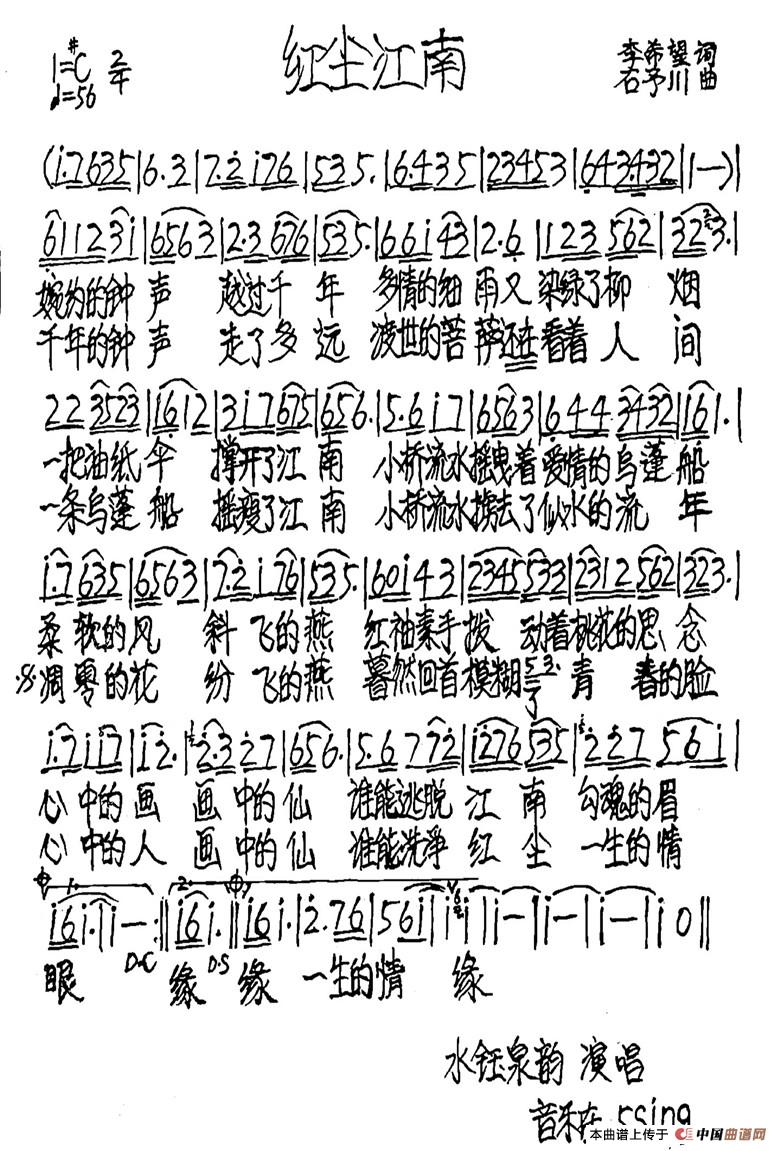 红尘江南
1=#C 2/4
♩=56
李希望 词
石予川 曲
(i·7635|6·3|7·2i76|535·|6·435|23453|643432|1—)|
6112 3i|6563|2·3 676|535·|66i43|2·6|123 562|323·|
婉约的钟声 越过千年 多情的细雨又染绿了柳烟
千年的钟声 走了多远 渡世的菩萨还在看着人间
22 3523|1612|3i7675|656·|5·6i7|6563|6443432|161·|
一把油纸伞 撑开了江南 小桥流水摇曳着爱情的乌蓬船
一条乌蓬船 摇瘦了江南 小桥流水掳去了似水的流年
i·7635|6563|7·2i76|535·|60i43|2345533|2312562|323·|
柔软的风 斜飞的燕 红袖素手拨动着桃花的思念
凋零的花 纷飞的燕 蓦然回首模糊了青春的脸
i·7i i7|i2·|2·327|656·|5·6772|i276535|227 56i|
心中的画 画中的仙 谁能逃脱江南 勾魂的眉
心中的人 画中的仙 谁能洗净红尘 一生的情
1. 2.
i6i·|i—:‖i6i·‖i6i·|2·76|56i|i i|i—|i—|i—|i0‖
D.C D.S
眼 缘 缘 一生的情 缘
水钰泉韵 演唱
音乐在
本曲谱上传于 中国曲谱网